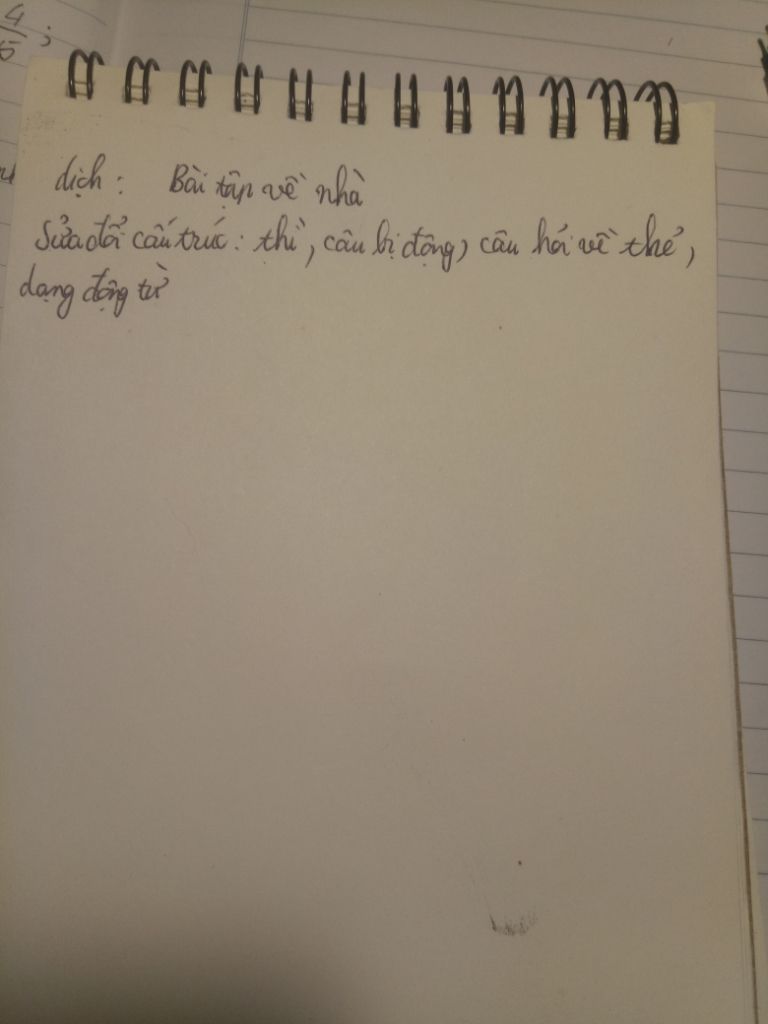 4
5 ;
dịch: Bài tập về nhà
Sửa đổi cấu trúc: thì, câu bị động, câu hỏi về thẻ,
dạng động từ